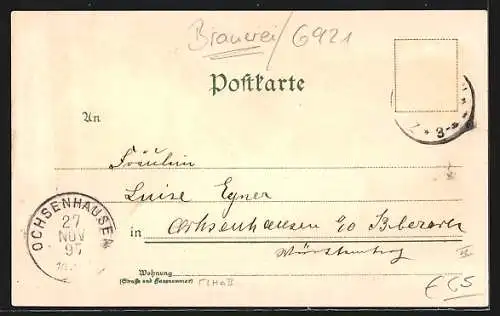 Brauerei / 6921
Postkarte
An
Fräulein
Luise Egner
in Ochsenhausen
Württemberg
Wohnung
(Straße und Hausnummer)
OCHSENHAUSEN
27
NOV
97